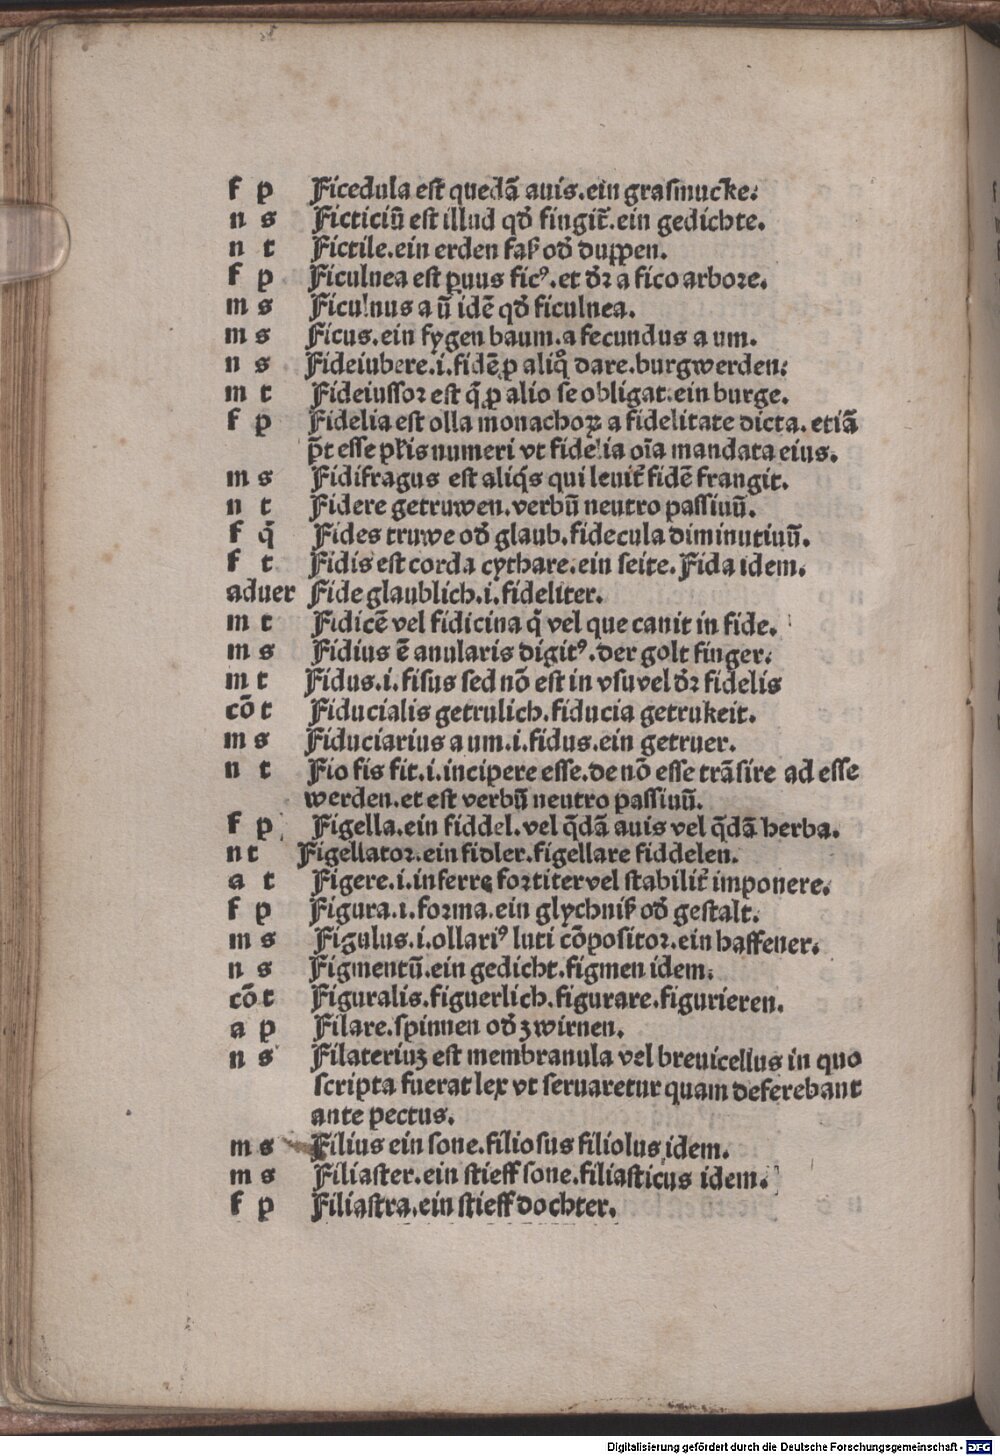 f p Ficedula est quedā auis.ein grasmucke.
n s Ficticiū est illud qđ fingit̄.ein gedichte.
n t Fictile.ein erden faß ođ duppen.
f p Ficulnea est ꝑuus ficꝰ.et đꝛ a fico arbore.
m s Ficulnus a ū idē qđ ficulnea.
m s Ficus.ein fygen baum.a fecundus a um.
n s Fideiubere.i.fidē ꝓ aliq̊ dare.burgwerden.
m t Fideiussor est q̄ ꝓ alio se obligat.ein burge.
f p Fidelia est olla monachoꝝ a fidelitate dicta. etiā
p̄t esse pl̄is numeri vt fidelia oīa mandata eius.
m s Fidifragus est aliq̄s qui leuit̄ fidē frangit.
n t Fidere getruwen.verbū neutro passiuū.
f q̄ Fides truwe ođ glaub.fidecula diminutiuū.
f t Fidis est corda cythare.ein seite.Fida idem.
aduer Fide glaublich.i.fideliter.
m t Fidicē vel fidicina q̄ vel que canit in fide.
m s Fidius ē anularis digitꝰ.der golt finger.
m t Fidus.i.fisus sed nō est in vsu vel đꝛ fidelis
cō t Fiducialis getrulich.fiducia getrukeit.
m s Fiduciarius a um.i.fidus.ein getruer.
n t Fio fis fit.i.incipere esse.de nō esse trāsire ad esse
werden.et est verbū neutro passiuū.
f p Figella.ein fiddel.vel q̄dā auis vel q̄dā herba.
n t Figellator.ein fidler.figellare fiddelen.
a t Figere.i.inferre fortiter vel stabilit̄ imponere.
f p Figura.i.forma.ein glychniß ođ gestalt.
m s Figulus.i.ollariꝰ luti cōpositor.ein haffener.
n s Figmentū.ein gedicht.figmen idem.
cō t Figuralis.figuerlich.figurare.figurieren.
a p Filare.spinnen ođ zwirnen.
n s Filateriuꝫ est membranula vel breuicellus in quo
scripta fuerat lex vt seruaretur quam deferebant
ante pectus.
m s Filius ein sone.filiosus filiolus idem.
m s Filiaster.ein stieff sone.filiasticus idem.
f p Filiastra.ein stieff dochter.
Digitalisierung gefördert durch die Deutsche Forschungsgemeinschaft - DFG